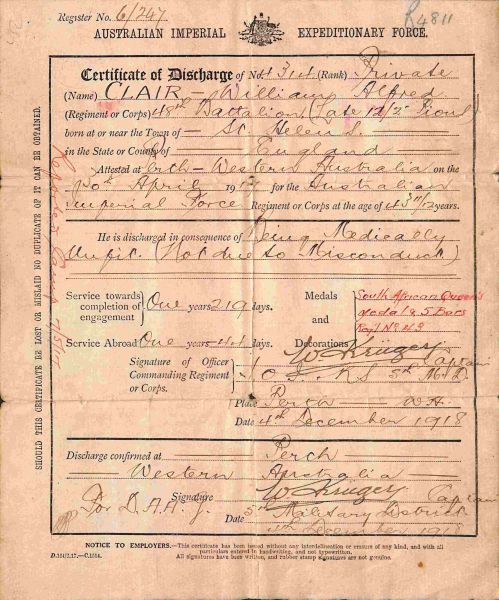 Register No. 6/247
R4811
AUSTRALIAN IMPERIAL EXPEDITIONARY FORCE.
Certificate of Discharge of No. 4314 (Rank) Private
(Name) CLAIR - William Alfred
(Regiment or Corps) 48th Battalion (Late
born at or near the Town of — St. Helens.
in the State or County of England
Attested at Perth - Western Australia on the
April 19 for the Australian
Imperial Force Regiment or Corps at the age of 43 years.
He is discharged in consequence of Being Medically
Unfit. (Not due to Misconduct)
Service towards completion of engagement One years 219 days.
Medals and Decorations South African Queen's Medal & 5 Bars
Service Abroad One years days.
Signature of Officer Commanding Regiment or Corps. W Krüger Captain
Place Perth — W.A.
Date 4th December 1918
Discharge confirmed at Perch
Western Australia
Signature W Krüger Captain
For D.A.A.G.
5th Military District
Date 4th December 1918
NOTICE TO EMPLOYERS.—This certificate has been issued without any interdelineation or erasure of any kind, and with all
particulars entered in handwriting, and not typewritten.
All signatures have been written, and rubber stamp signatures are not genuine.
SHOULD THIS CERTIFICATE BE LOST OR MISLAID NO DUPLICATE OF IT CAN BE OBTAINED.